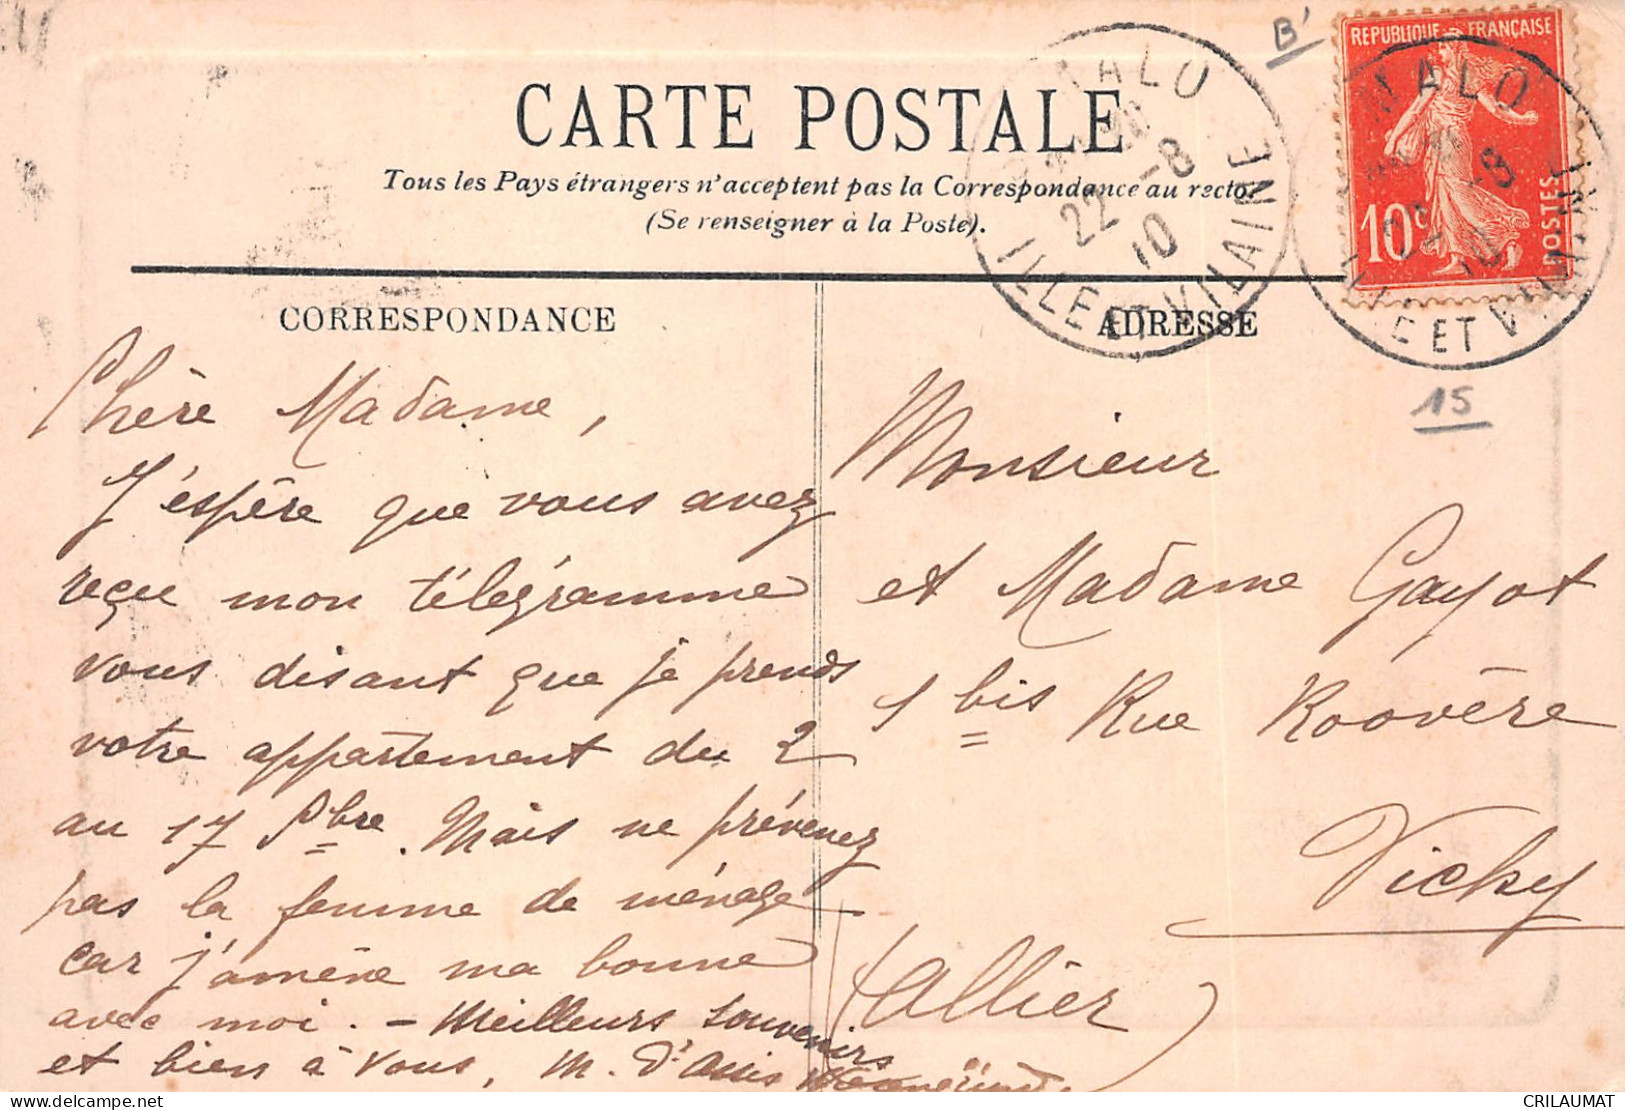 B'
REPUBLIQUE FRANÇAISE
10c
POSTES
MALO
22 -8
10
ILLE ET VILAINE
MALO
-8
10
ET VILAINE
15
CARTE POSTALE
Tous les Pays étrangers n'acceptent pas la Correspondance au recto.
(Se renseigner à la Poste).
CORRESPONDANCE
Chère Madame,
J'espère que vous avez
reçu mon télégramme
vous disant que je prends
votre appartement du 2
au 17 9bre. Mais ne prévenez
pas la femme de ménage
car j'amène ma bonne
avec moi. - Meilleurs souvenirs
et bien à vous, M. d'Assis
ADRESSE
Monsieur
et Madame Gayot
1 bis Rue Roovère
Vichy
(Allier)
CRILAUMAT
delcampe.net